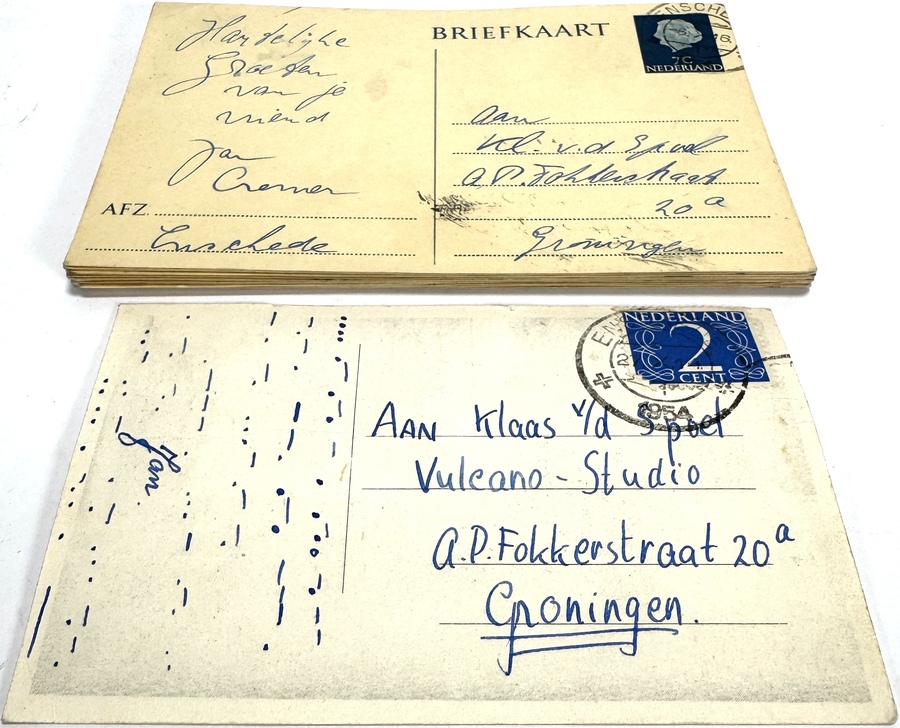 Hartelijke
Groeten
van je
vriend
Jan
Cremer
AFZ.
Enschede
BRIEFKAART
ENSCH
7C
NEDERLAND
Aan
Kl. v.d Spoel
A.P. Fokkerstraat
20a
Groningen
Jan
NEDERLAND
2
CENT
1954
AAN Klaas v/d Spoel
Vulcano-Studio
A.P. Fokkerstraat 20a
Groningen.